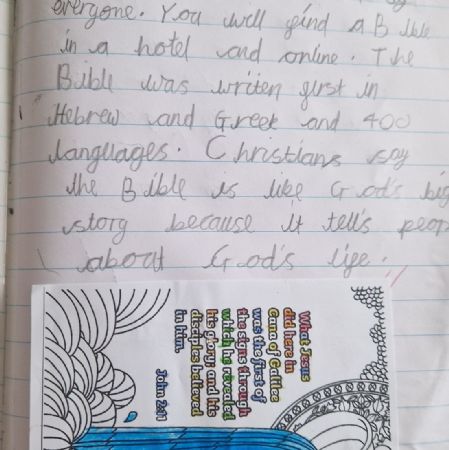 everyone. You will find a Bible
in a hotel and online. The
Bible was writen first in
Hebrew and Greek and 400
languages. Christians say
the Bible is like God's big
story because it tell's peop
about God's life.
What Jesus
did here in
Cana of Galilee
was the first of
the signs through
which he revealed
his glory; and his
disciples believed
in him.
John 2:11